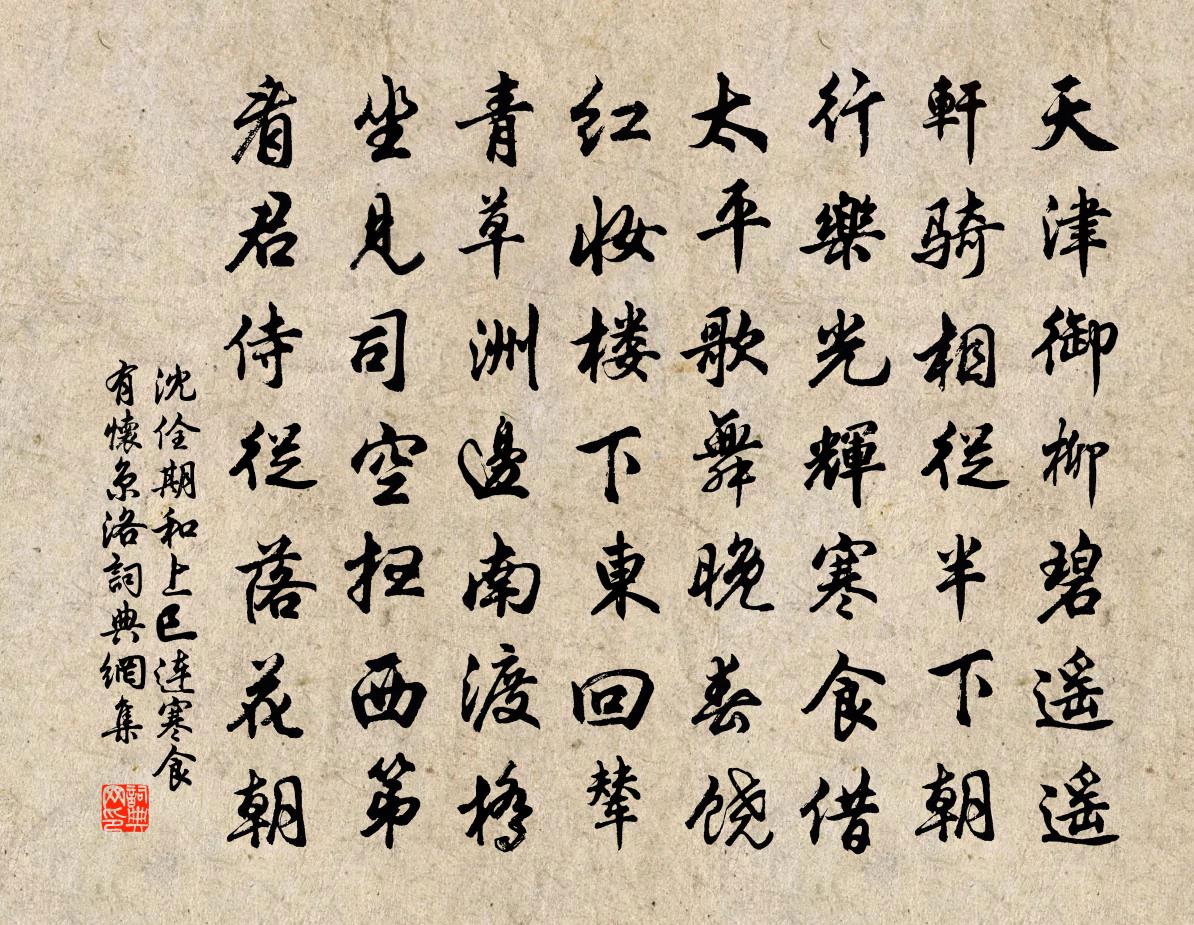 天津御柳碧遥遥
軒騎相從半下朝
行樂光輝寒食借
太平歌舞晚春饒
红妝楼下東回輦
青草洲邊南渡橋
坐見司空扫西第
看君侍從落花朝
沈佺期和上巳连寒食
有懷京洛詞典網集
詞典
网印